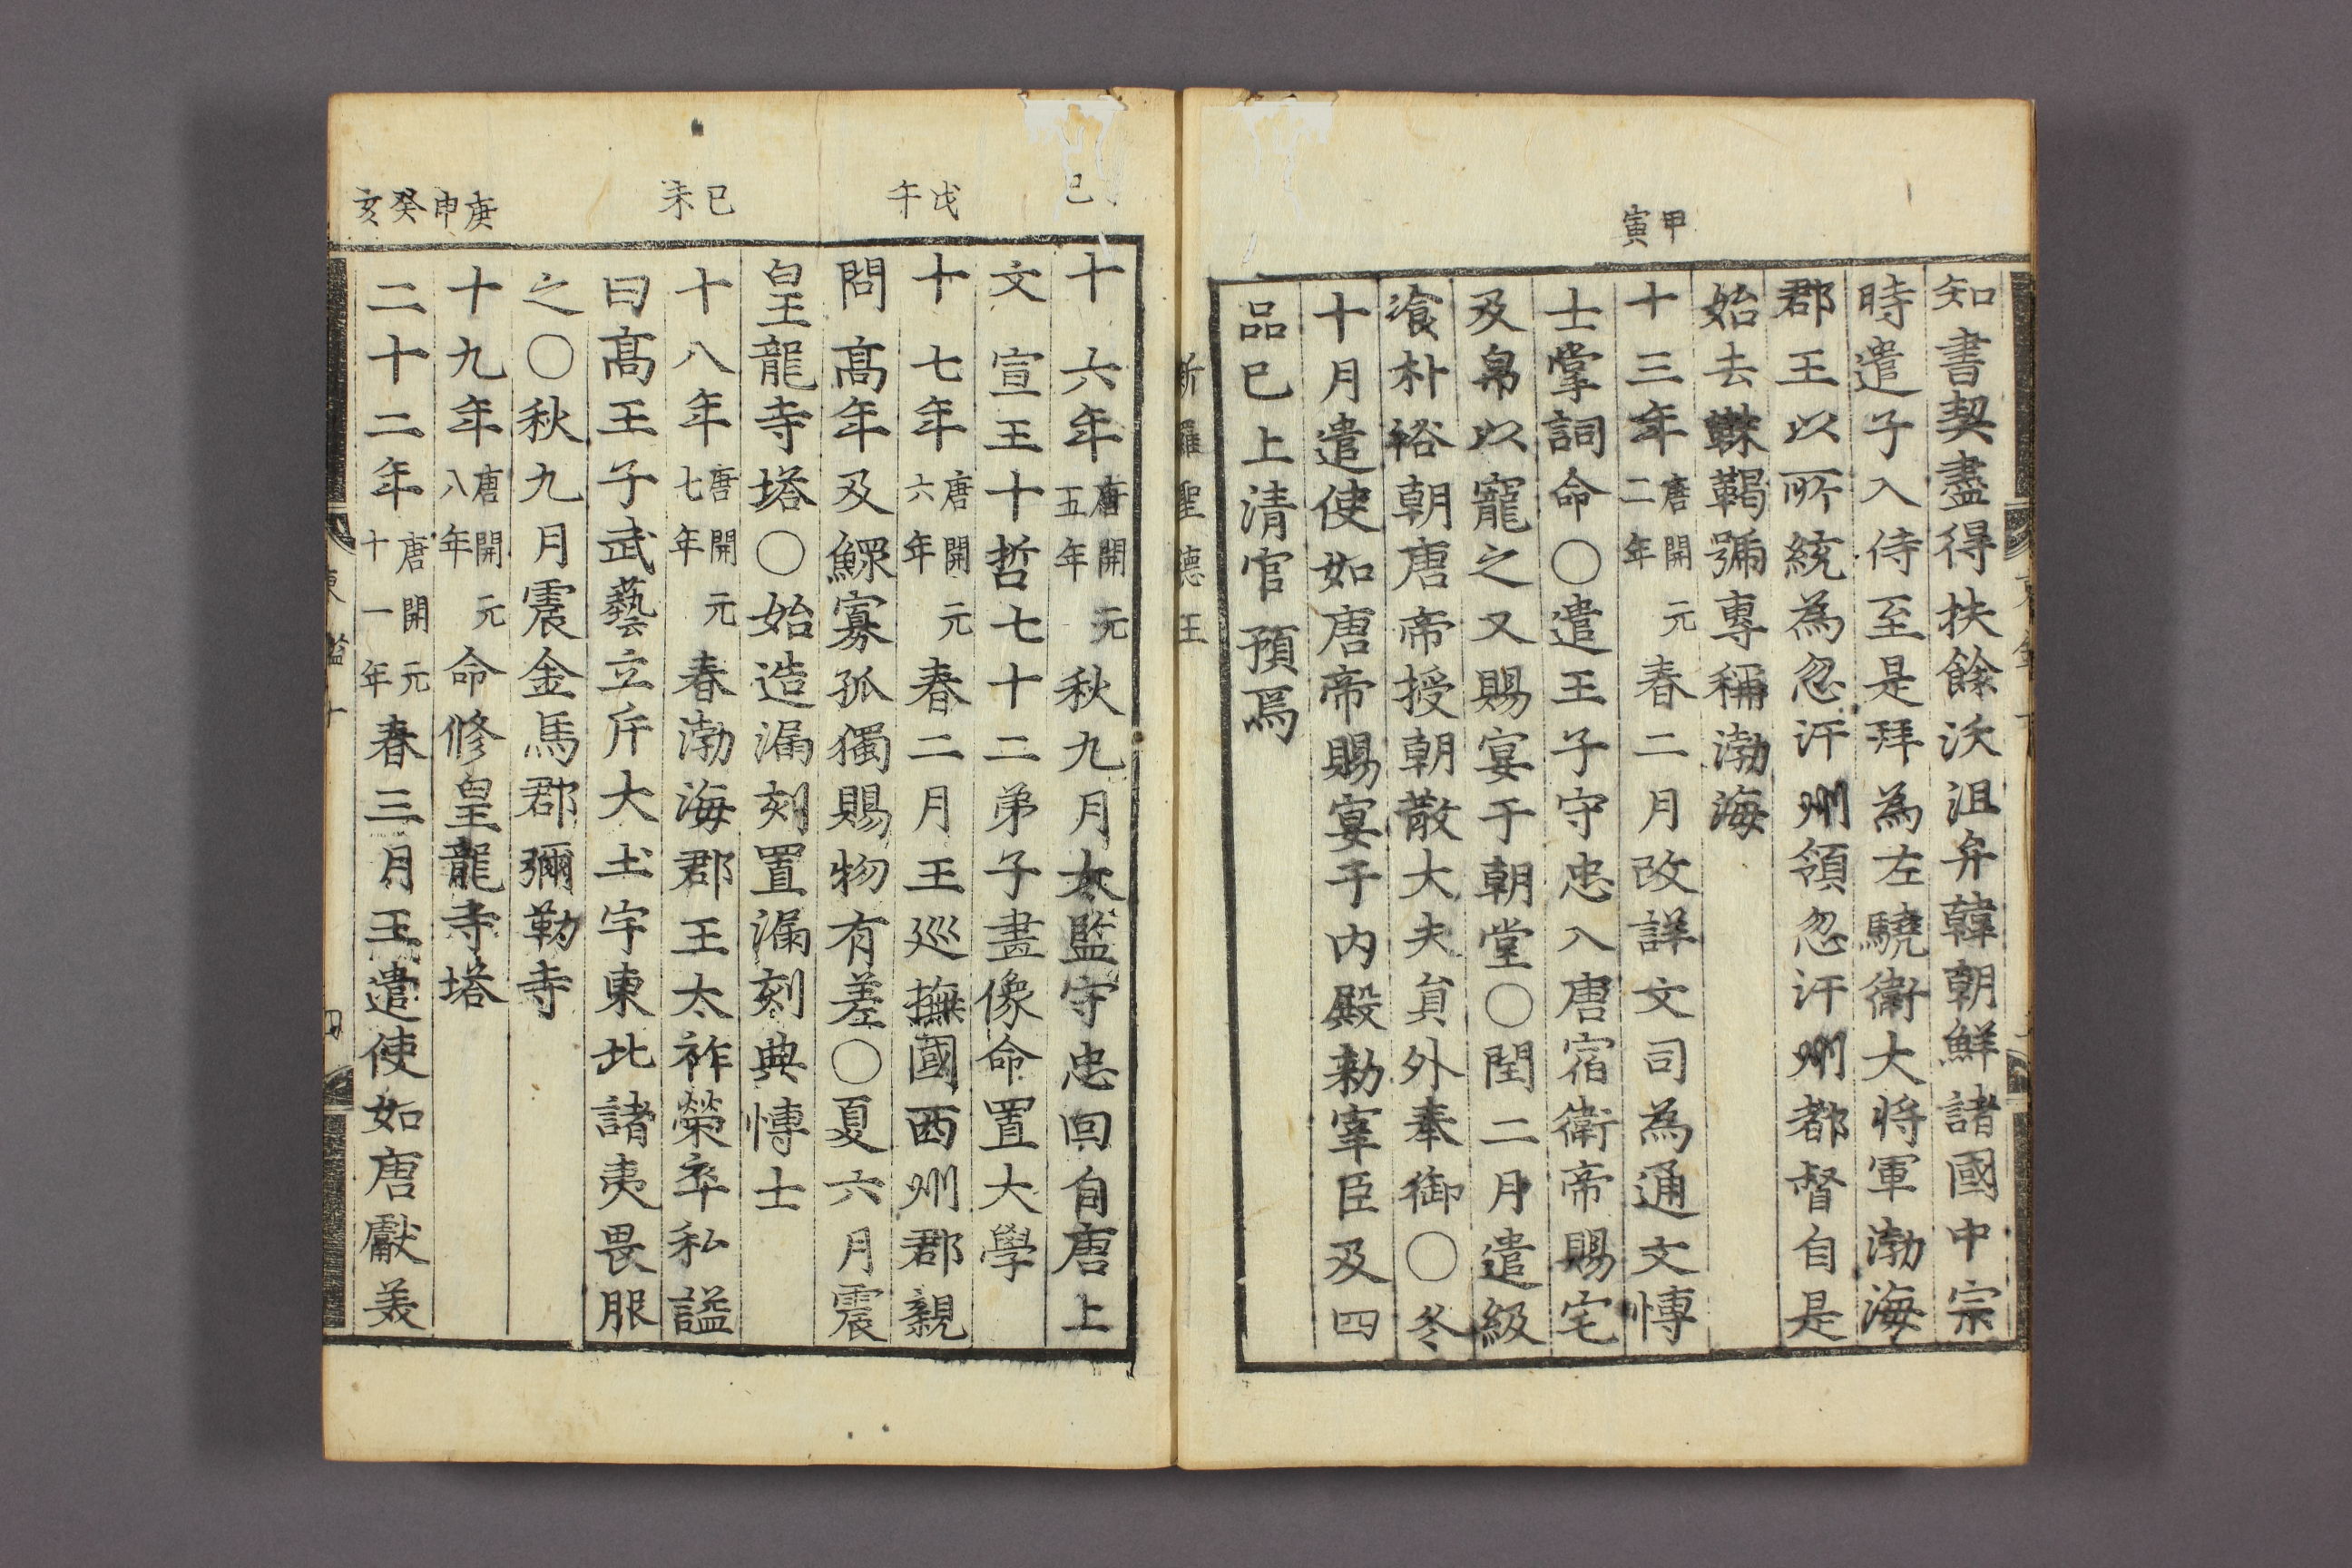 甲寅
知書契盡得扶餘沃沮弁韓朝鮮諸國中宗
時遣子入侍至是拜為左驍衛大將軍渤海
郡王以所統為忽汗州領忽汗州都督自是
始去靺鞨號專稱渤海
十三年唐開元二年春二月改詳文司為通文博
士掌詞命○遣王子守忠入唐宿衛帝賜宅
及帛以寵之又賜宴于朝堂○閏二月遣級
飡朴裕朝唐帝授朝散大夫負外奉御○冬
十月遣使如唐帝賜宴于內殿勑宰臣及四
品已上清官預焉
新羅聖德王
巳
戊午
己未
庚申
癸亥
十六年唐開元五年秋九月太監守忠回自唐上
文宣王十哲七十二弟子畫像命置大學
十七年唐開元六年春二月王巡撫國西州郡親
問高年及鰥寡孤獨賜物有差○夏六月震
皇龍寺塔○始造漏刻置漏刻典博士
十八年唐開元七年春渤海郡王太祚榮卒私謚
曰高王子武藝立斥大土宇東北諸夷畏服
之○秋九月震金馬郡彌勒寺
十九年唐開元八年命修皇龍寺塔
二十二年唐開元十一年春三月王遣使如唐獻美